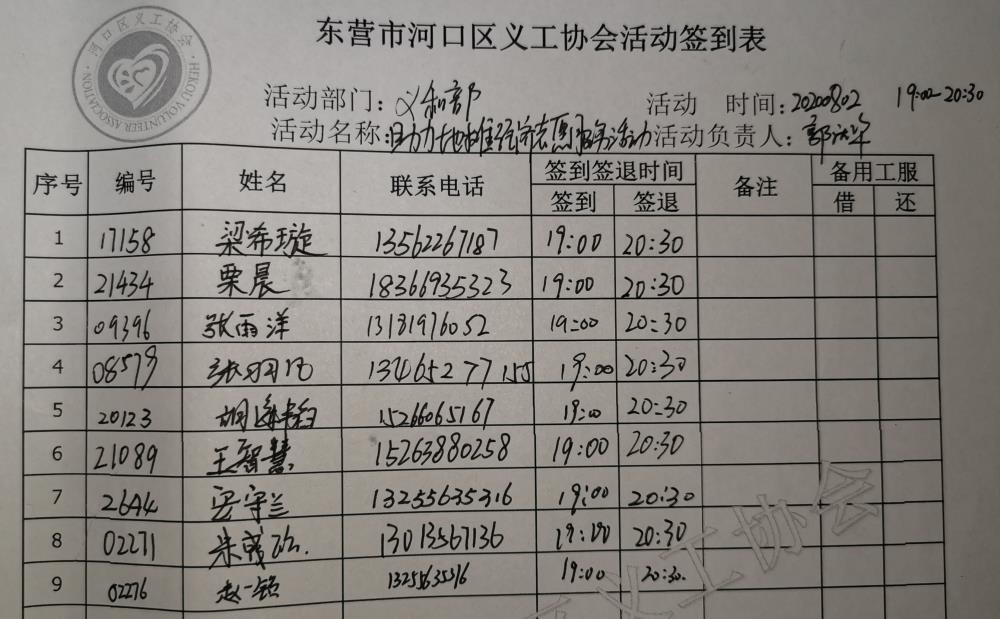 东营市河口区义工协会活动签到表
河口区义工协会
HEKOU VOLUNTEER ASSOCIATION
活动部门：义和部 活动 时间：20200802 19:00-20:30
活动名称：助力地摊经济志愿服务活动 活动负责人：
序号 编号 姓名 联系电话 签到签退时间 备注 备用工服
签到 签退 借 还
1 17158 梁希璇 13562267187 19:00 20:30
2 21434 栗晨 18366935323 19:00 20:30
3 09396 张雨洋 13181976052 19:00 20:30
4 08579 13465277155 19:00 20:30
5 20123 15266065167 19:00 20:30
6 21089 王智慧 15263880258 19:00 20:30
7 13255635316 19:00 20:30
8 02271 13013567136 19:00 20:30
9 02276 19:00 20:30.
义工协会